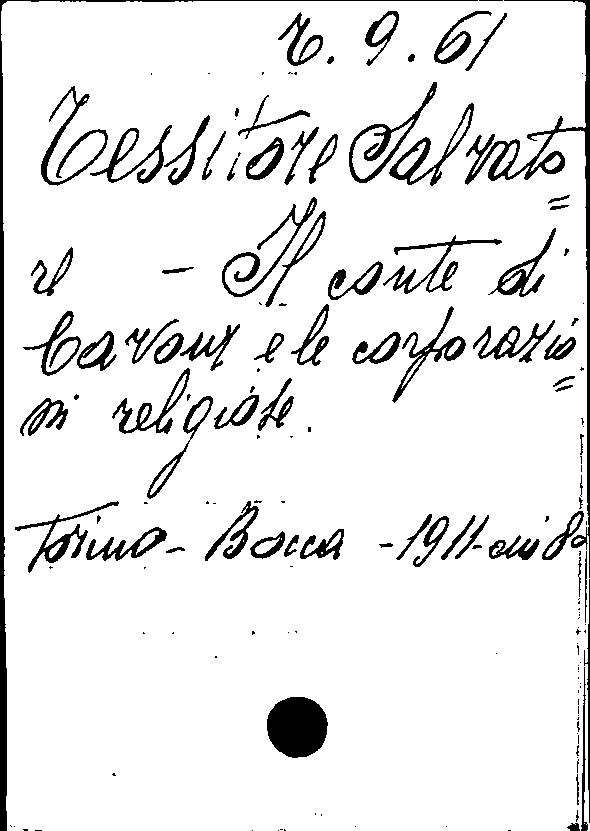 T. 9. 61
Tessitore Salvato=
re - Il conte di
Cavour e le corporazio=
ni religiose.
Torino - Bocca - 1911 - in 8°